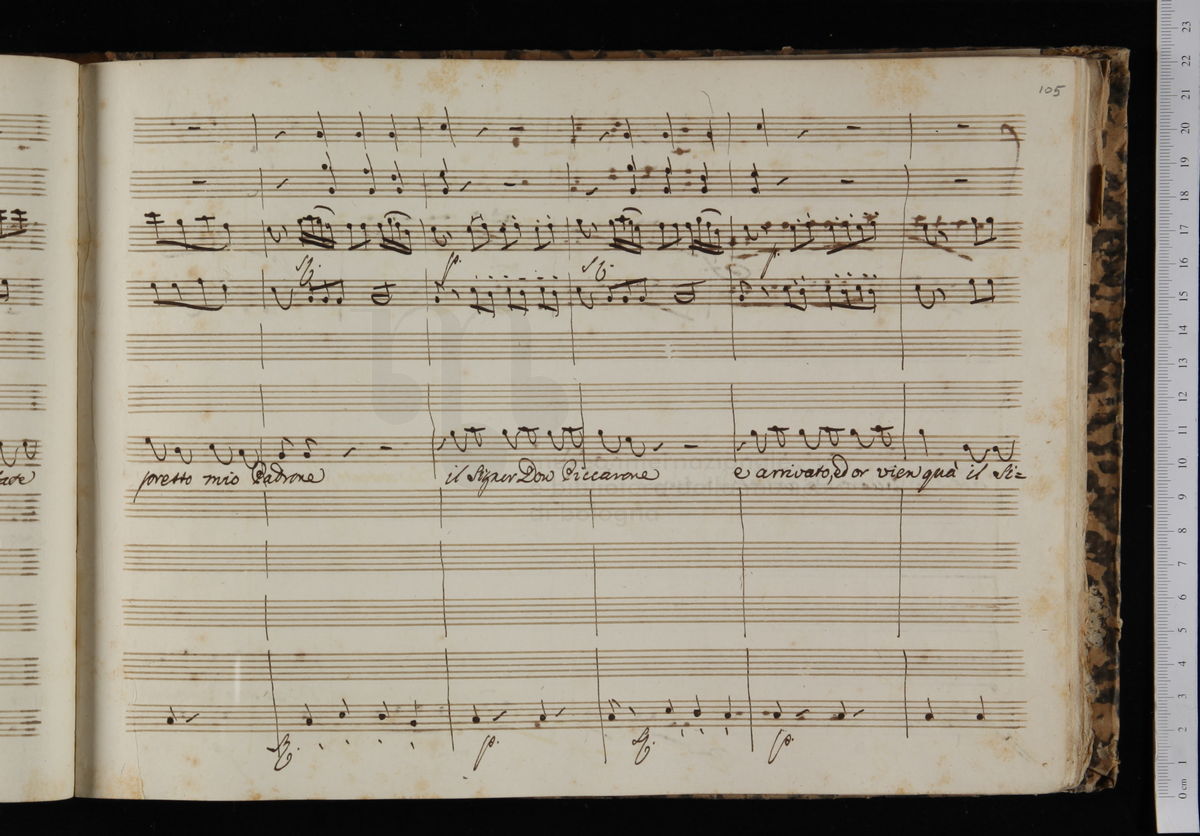 105
p.
p.
presto mio Padrone il Signor Don Piccarone è arrivato, ed or vien quà il Si=
p. p.
0 cm 1 2 3 4 5 6 7 8 9 10 11 12 13 14 15 16 17 18 19 20 21 22 23